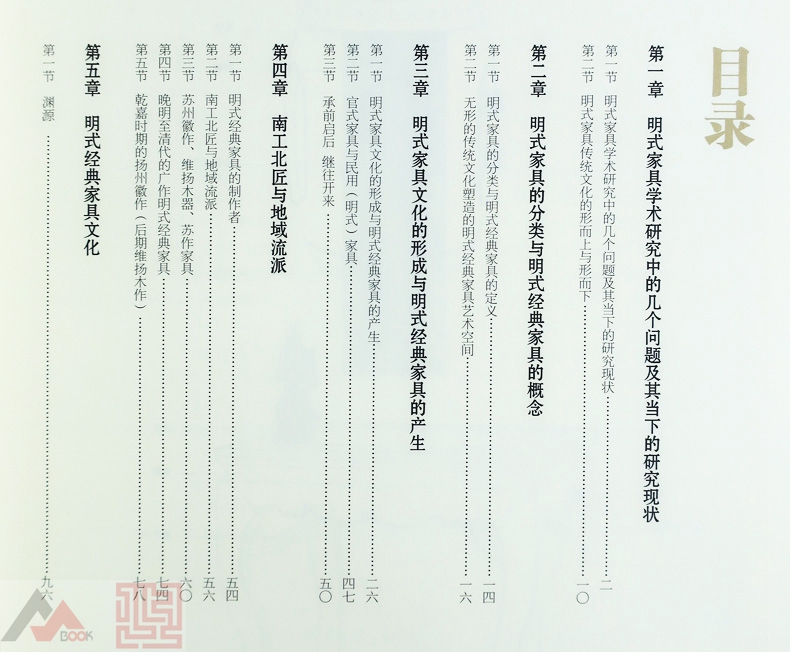 目录
第一章 明式家具学术研究中的几个问题及其当下的研究现状
第一节 明式家具学术研究中的几个问题及其当下的研究现状……二
第二节 明式家具传统文化的形而上与形而下……一〇
第二章 明式家具的分类与明式经典家具的概念
第一节 明式家具的分类与明式经典家具的定义……一四
第二节 无形的传统文化塑造的明式经典家具艺术空间……一六
第三章 明式家具文化的形成与明式经典家具的产生
第一节 明式家具文化的形成与明式经典家具的产生……二六
第二节 官式家具与民用(明式)家具……四七
第三节 承前启后 继往开来……五〇
第四章 南工北匠与地域流派
第一节 明式经典家具的制作者……五四
第二节 南工北匠与地域流派……五六
第三节 苏州徽作、维扬木器、苏作家具……六〇
第四节 晚明至清代的广作明式经典家具……七四
第五节 乾嘉时期的扬州徽作(后期维扬木作)……七八
第五章 明式经典家具文化
第一节 渊源……九六
BOOK